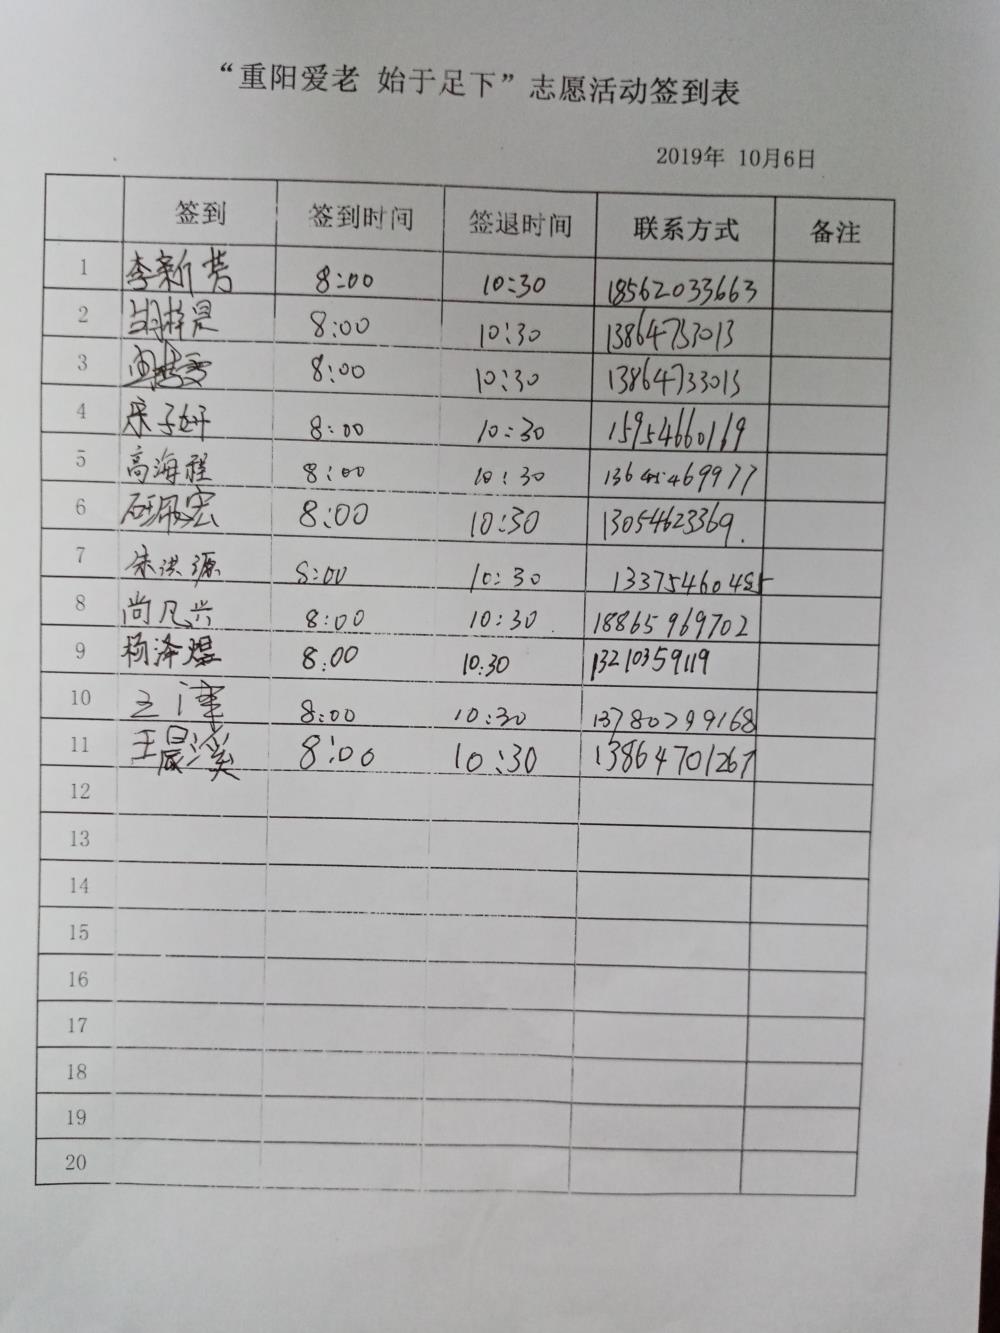 “重阳爱老 始于足下”志愿活动签到表
2019年 10月6日
签到 签到时间 签退时间 联系方式 备注
1 李新芳 8:00 10:30 18562033663
2 胡梓晨 8:00 10:30 13864753013
3 8:00 10:30 13864733013
4 宋子妤 8:00 10:30 15954660169
5 高海程 8:00 10:30
6 8:00 10:30 13054623369.
7 朱洪源 8:00 10:30
8 尚凡兴 8:00 10:30 18865969702
9 杨泽煜 8:00 10:30 13210359119
10 王津 8:00 10:30 13780799168
11 王晨溪 8:00 10:30 13864701267
12
13
14
15
16
17
18
19
20